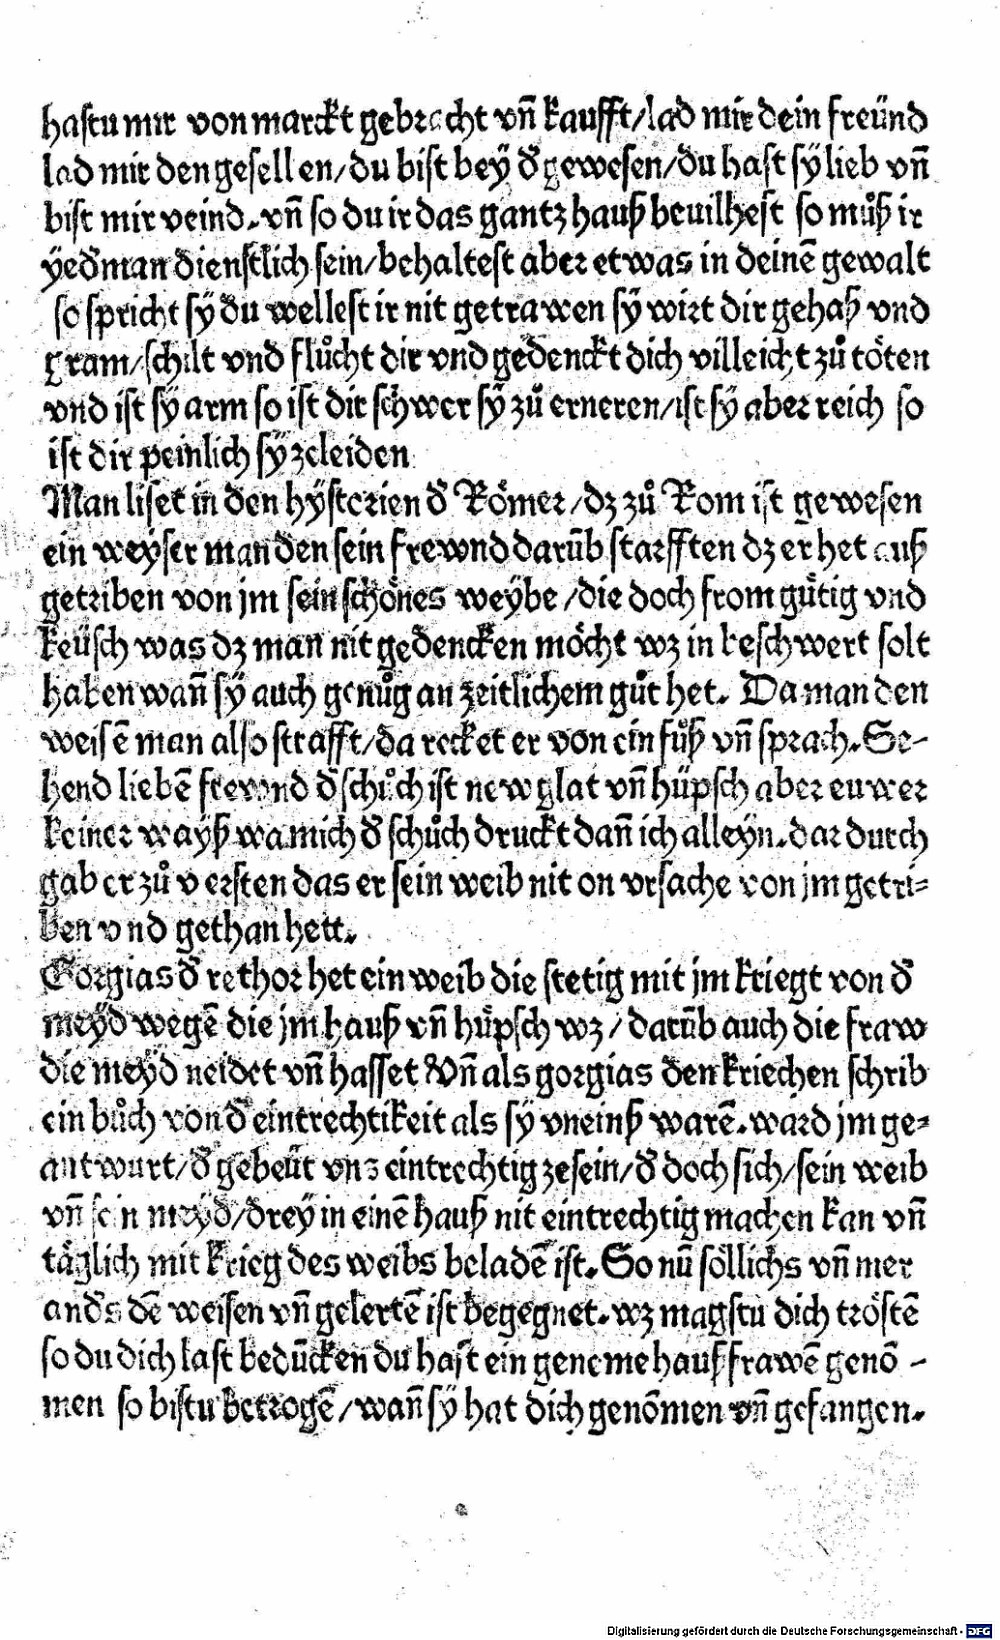 hastu mir von marckt gebracht vn̄ kaufft/lad mir dein freünd
lad mir den gesellen/du bist beÿ đ gewesen/du hast sÿ lieb vn̄
bist mir veind. vn̄ so du ir das gantz hauß beuilhest so můß ir
ÿeđman dienstlich sein/behaltest aber etwas in deinē gewalt
so spricht sÿ du wellest ir nit getrawen sÿ wirt dir gehaß vnd
gram/schilt vnd flůcht dir vnd gedenckt dich villeicht zů töten
vnd ist sÿ arm so ist dir schwer sÿ zů erneren/ist sÿ aber reich so
ist dir peinlich sÿ zeleiden
Man liset in den hÿstorien đ Römer/dz zů Rom ist gewesen
ein weyser man den sein frewnd darūb starfften dz er het auß
getriben von jm sein schönes weÿbe/die doch from gůtig vnd
keüsch was dz man nit gedencken möcht wz in beschwert solt
haben wann̄ sÿ auch genůg an zeitlichem gůt het. Da man den
weisē man also strafft/da recket er von ein fůß vn̄ sprach. Se-
hend lieben̄ frewnd đ schůch ist new glat vn̄ hüpsch aber euwer
keiner wayß wa mich đ schůch druckt dan̄ ich alleyn. dar durch
gab er zů versten das er sein weib nit on vrsache von jm getri=
ben vnd gethan hett.
Gorgias đ rethor het ein weib die stetig mit jm kriegt von đ
meÿd wegē die jm hauß vn̄ hüpsch wz/darūb auch die fraw
die meÿd neidet vn̄ hasset Vn̄ als gorgias den kriechen schrib
ein bůch von đ eintrechtikeit als sÿ vneinß warē. ward jm ge=
antwurt/đ gebeüt vns eintrechtig ze sein/đ doch sich/sein weib
vn̄ sein meÿd/dreÿ in einē hauß nit eintrechtig machen kan vn̄
täglich mit krieg des weibs beladē ist. So nū söllichs vn̄ mer
anđs dē weisen vn̄ gelertē ist begegnet. wz magstu dich tröstē
so du dich last bedūcken du hast ein geneme haußfrawē genō-
men so bistu betrogē/wan̄ sÿ hat dich genōmen vn̄ gefangen.
Digitalisierung gefördert durch die Deutsche Forschungsgemeinschaft - DFG